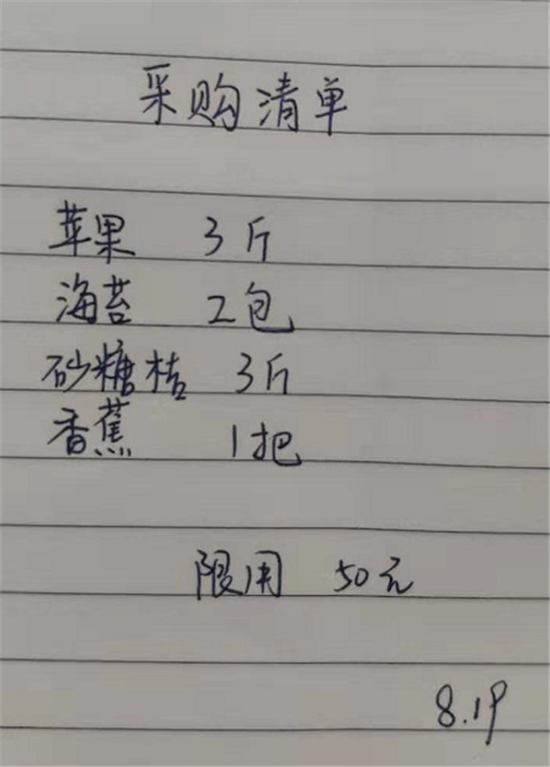 采购清单
苹果 3斤
海苔 2包
砂糖桔 3斤
香蕉 1把
限用 50元
8.19